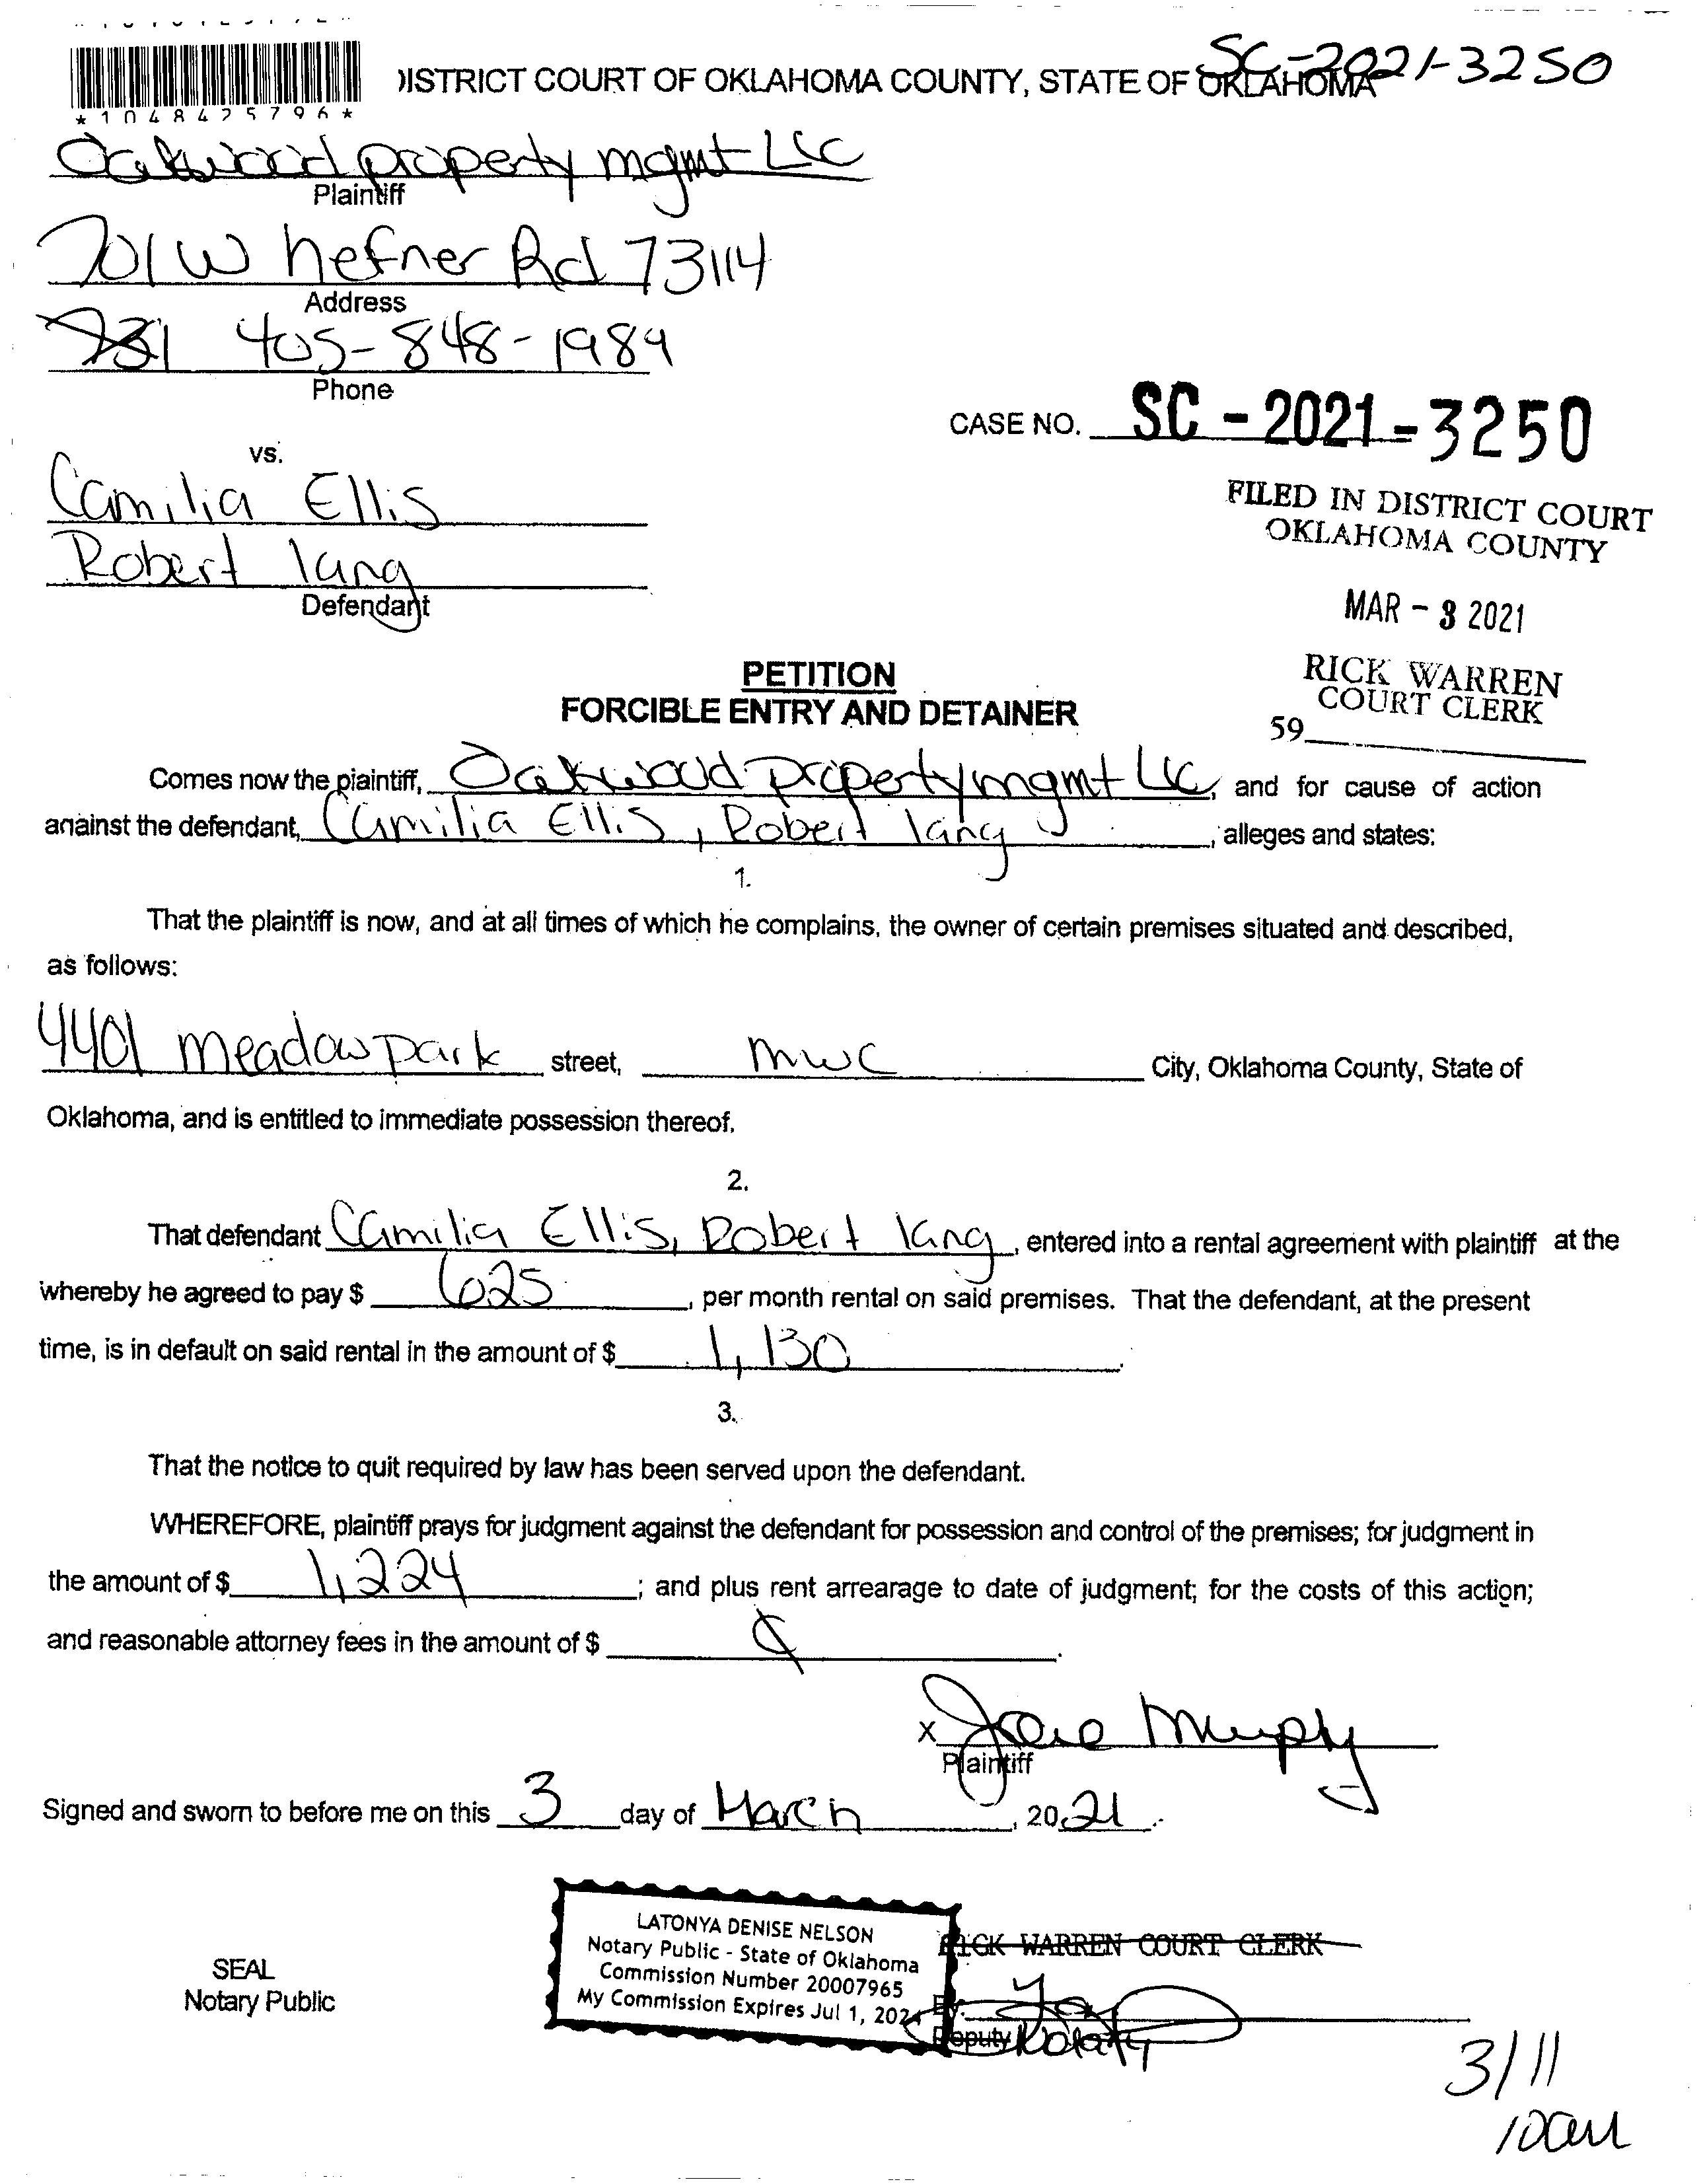 SC-2021-3250
DISTRICT COURT OF OKLAHOMA COUNTY, STATE OF OKLAHOMA
*1048425796*
Oakwood property mgmt LLC
Plaintiff
701 W hefner Rd 73114
Address
405-848-1989
Phone
CASE NO. SC-2021-3250
vs.
Camilia Ellis
Robert lang
Defendant
FILED IN DISTRICT COURT
OKLAHOMA COUNTY
MAR - 3 2021
RICK WARREN
COURT CLERK
59
PETITION
FORCIBLE ENTRY AND DETAINER
Comes now the plaintiff, Oakwood property mgmt LLC, and for cause of action
against the defendant, Camilia Ellis, Robert lang, alleges and states:
1.
That the plaintiff is now, and at all times of which he complains, the owner of certain premises situated and described,
as follows:
4401 meadow park street, mwc City, Oklahoma County, State of
Oklahoma, and is entitled to immediate possession thereof.
2.
That defendant Camilia Ellis, Robert lang, entered into a rental agreement with plaintiff at the
whereby he agreed to pay $ 625, per month rental on said premises. That the defendant, at the present
time, is in default on said rental in the amount of $ 1,130.
3.
That the notice to quit required by law has been served upon the defendant.
WHEREFORE, plaintiff prays for judgment against the defendant for possession and control of the premises; for judgment in
the amount of $ 1,224; and plus rent arrearage to date of judgment; for the costs of this action;
and reasonable attorney fees in the amount of $
X Murphy
Plaintiff
Signed and sworn to before me on this 3 day of March, 2021.
SEAL
Notary Public
LATONYA DENISE NELSON
Notary Public - State of Oklahoma
Commission Number 20007965
My Commission Expires Jul 1, 2024
RICK WARREN COURT CLERK
By:
Deputy Notary
3/11
10am